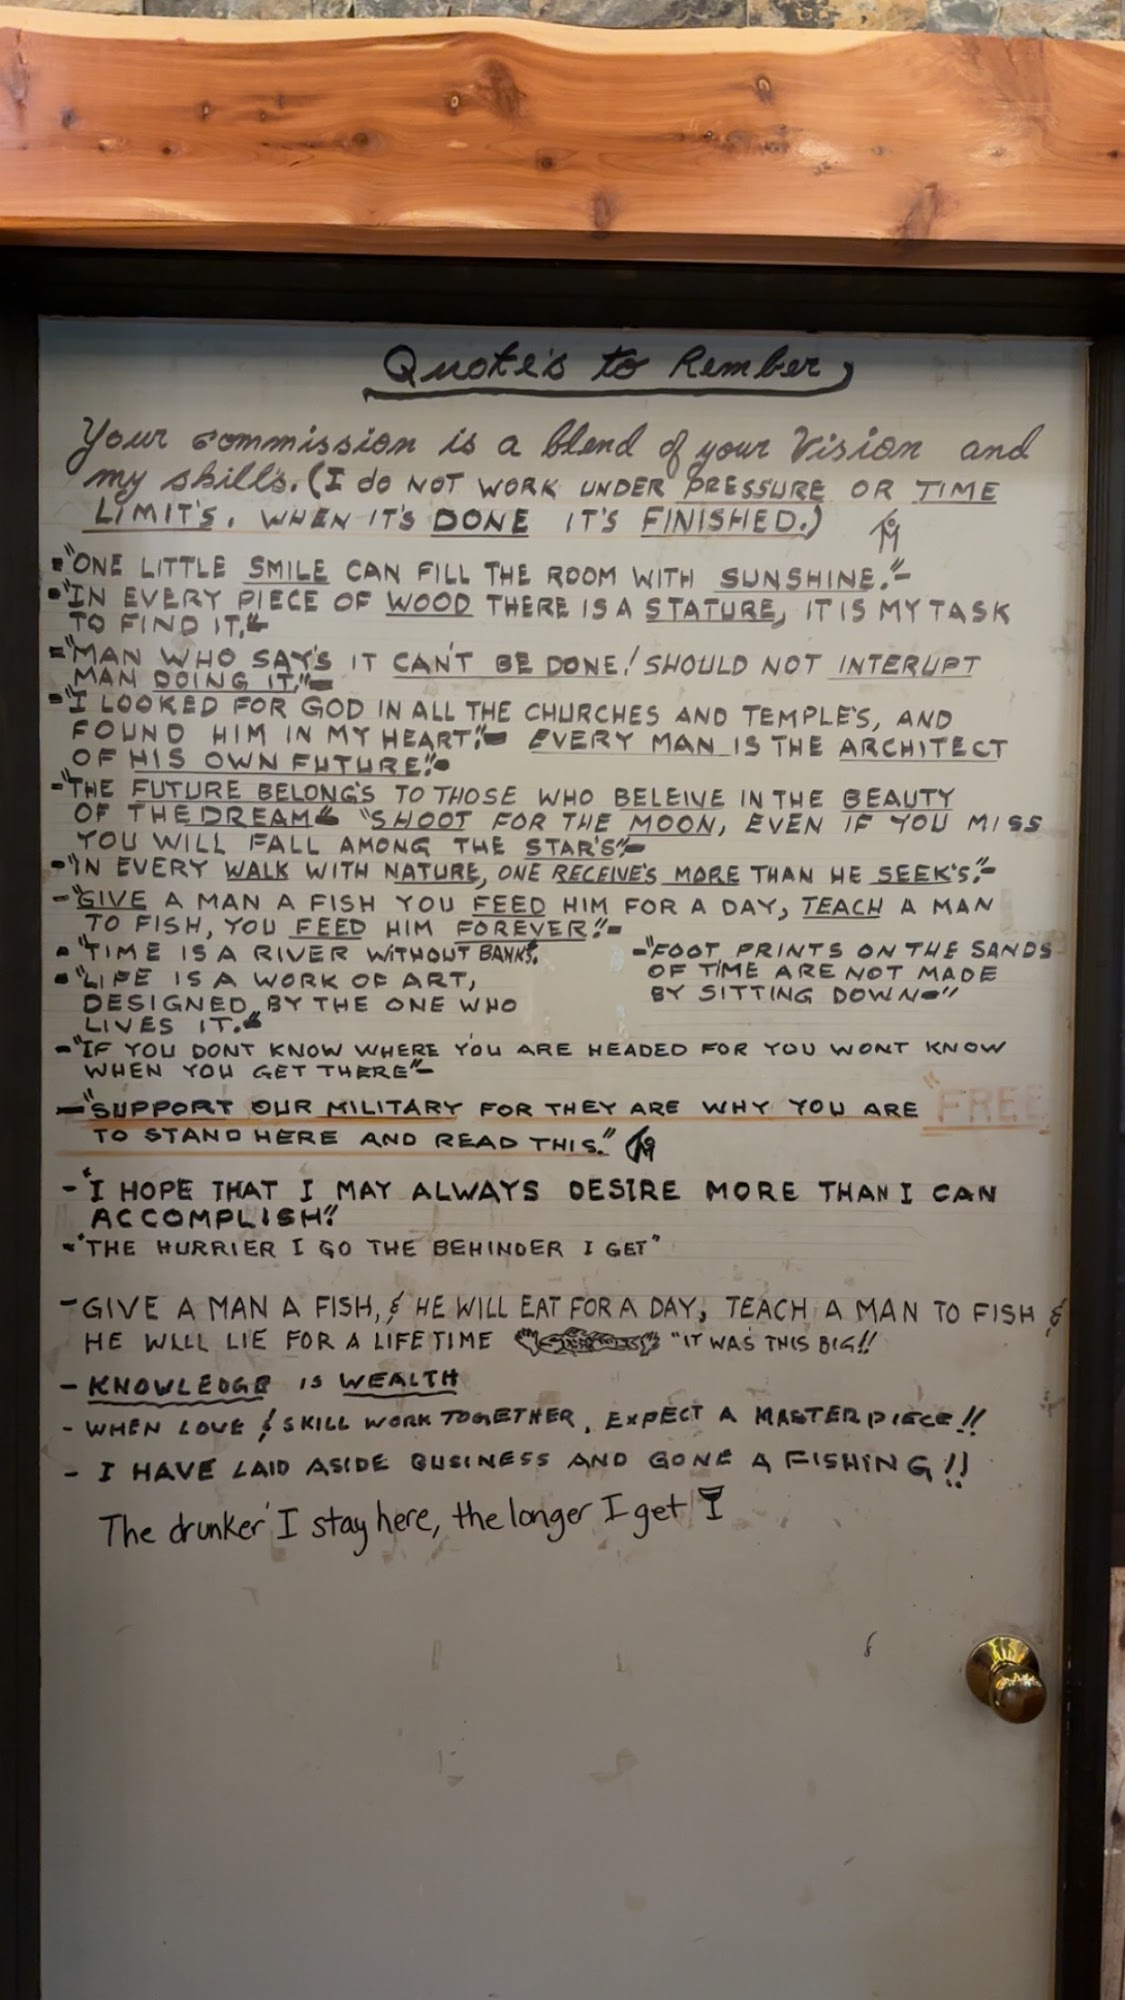 Quote's to Rember
Your commission is a blend of your Vision and
my skills. (I do NOT WORK UNDER PRESSURE OR TIME
LIMIT'S. WHEN IT'S DONE IT'S FINISHED.)
"ONE LITTLE SMILE CAN FILL THE ROOM WITH SUNSHINE."-
"IN EVERY PIECE OF WOOD THERE IS A STATURE, IT IS MY TASK
TO FIND IT."
"MAN WHO SAY'S IT CAN'T BE DONE! SHOULD NOT INTERUPT
MAN DOING IT."-
"I LOOKED FOR GOD IN ALL THE CHURCHES AND TEMPLE'S, AND
FOUND HIM IN MY HEART."- EVERY MAN IS THE ARCHITECT
OF HIS OWN FUTURE."-
-"THE FUTURE BELONG'S TO THOSE WHO BELEIVE IN THE BEAUTY
OF THE DREAM" "SHOOT FOR THE MOON, EVEN IF YOU MISS
YOU WILL FALL AMONG THE STAR'S"-
-"IN EVERY WALK WITH NATURE, ONE RECEIVE'S MORE THAN HE SEEK'S."-
-"GIVE A MAN A FISH YOU FEED HIM FOR A DAY, TEACH A MAN
TO FISH, YOU FEED HIM FOREVER."-
-"TIME IS A RIVER WITHOUT BANKS.
-"LIFE IS A WORK OF ART,
DESIGNED BY THE ONE WHO
LIVES IT."
-"FOOT PRINTS ON THE SANDS
OF TIME ARE NOT MADE
BY SITTING DOWN-"
-"IF YOU DONT KNOW WHERE YOU ARE HEADED FOR YOU WONT KNOW
WHEN YOU GET THERE"-
-"SUPPORT OUR MILITARY FOR THEY ARE WHY YOU ARE "FREE
TO STAND HERE AND READ THIS."
-"I HOPE THAT I MAY ALWAYS DESIRE MORE THAN I CAN
ACCOMPLISH."
-"THE HURRIER I GO THE BEHINDER I GET"
-GIVE A MAN A FISH, & HE WILL EAT FOR A DAY, TEACH A MAN TO FISH &
HE WILL LIE FOR A LIFETIME "IT WAS THIS BIG!!
- KNOWLEDGE IS WEALTH
- WHEN LOVE & SKILL WORK TOGETHER, EXPECT A MASTERPIECE!!
- I HAVE LAID ASIDE BUSINESS AND GONE A FISHING!!
The drunker I stay here, the longer I get